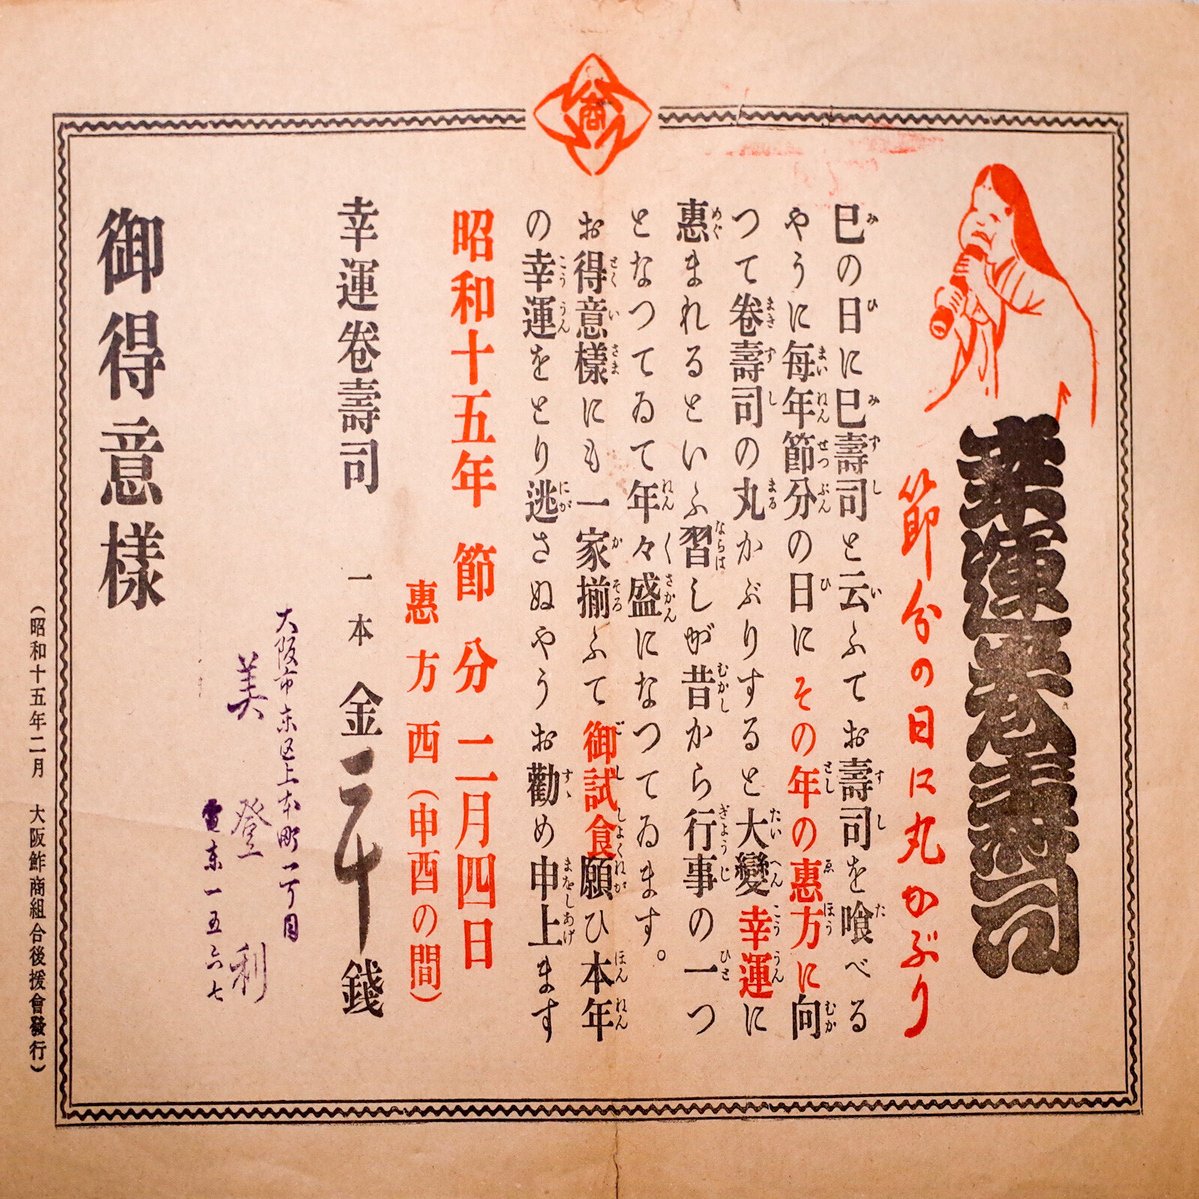 商
幸運巻壽司
節分の日に丸かぶり
巳の日に巳壽司と云ふてお壽司を喰べる
やうに毎年節分の日にその年の惠方に向
つて巻壽司の丸かぶりすると大變幸運に
惠まれるといふ習しが昔から行事の一つ
となつてゐて年々盛になつてゐます。
お得意樣にも一家揃ふて御試食願ひ本年
の幸運をとり逃さぬやうお勸め申上ます
昭和十五年 節分 二月四日
惠方西（申酉の間）
幸運巻壽司 一本 金二十錢
大阪市東区上本町一丁目
美登利
電東一五六七
御得意樣
（昭和十五年二月 大阪鮓商組合後援會發行）